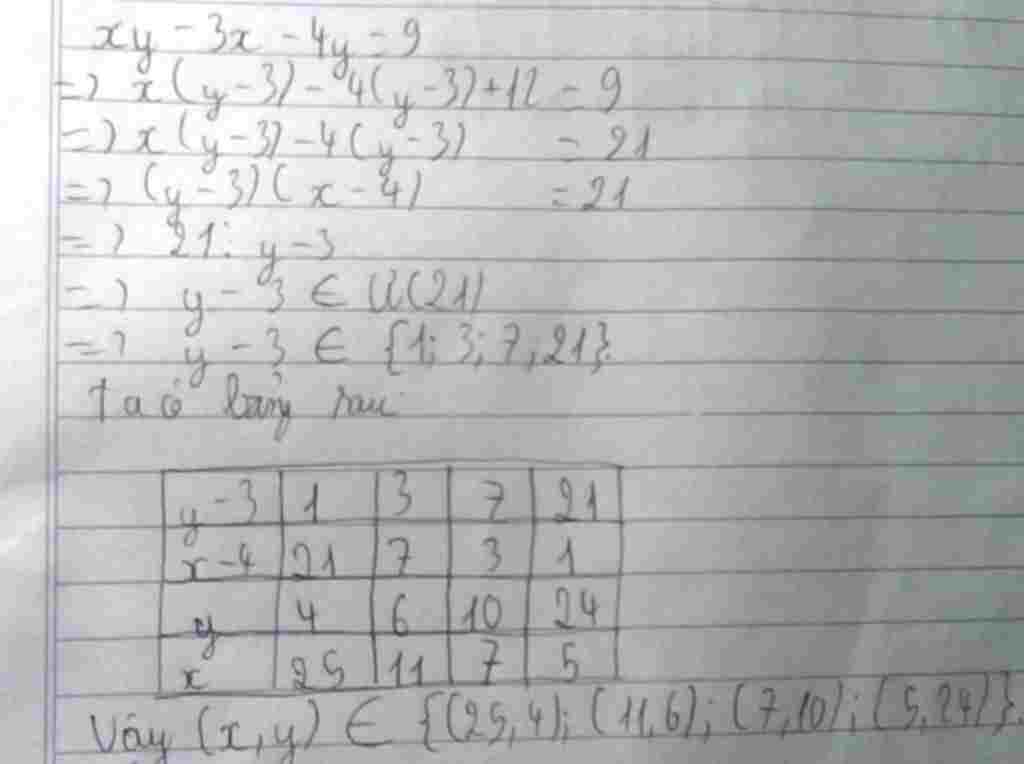 xy - 3x - 4y = 9
=> x(y-3) - 4(y-3) + 12 = 9
=> x(y-3) - 4(y-3) = 21
=> (y-3)(x-4) = 21
=> 21 ⋮ y-3
=> y - 3 ∈ Ư(21)
=> y - 3 ∈ {1; 3; 7; 21}.
Ta có bảng sau:
y-3 1 3 7 21
x-4 21 7 3 1
y 4 6 10 24
x 25 11 7 5
Vậy (x,y) ∈ {(25,4); (11,6); (7,10); (5,24)}.